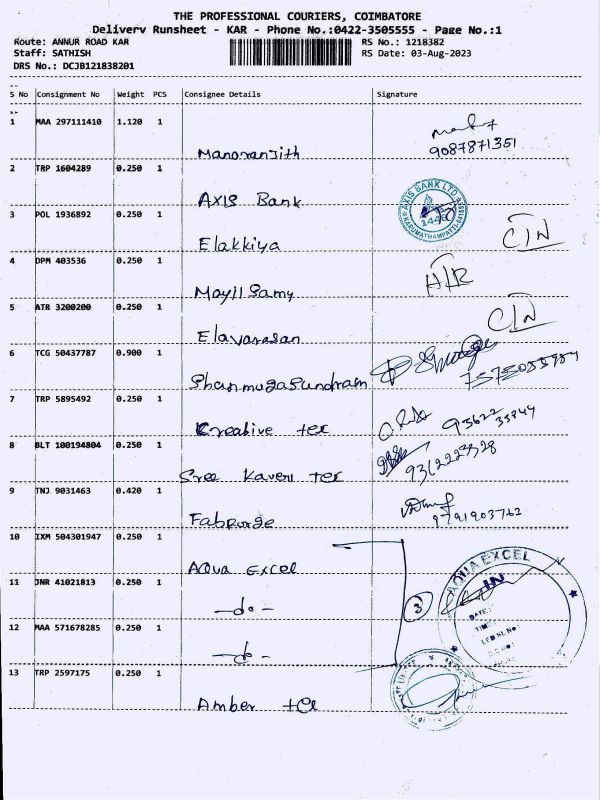 THE PROFESSIONAL COURIERS, COIMBATORE
Delivery Runsheet - KAR - Phone No.:0422-3505555 - Page No.:1
Route: ANNUR ROAD KAR RS No.: 1218382
Staff: SATHISH RS Date: 03-Aug-2023
DRS No.: DCJB121838201
S No Consignment No Weight PCS Consignee Details Signature
1 MAA 297111410 1.120 1
Manoranjith 9087871351
2 TRP 1604289 0.250 1
AXIS Bank AXIS BANK LTD
3 POL 1936892 0.250 1
Elakkiya C/N
4 DPM 403536 0.250 1
Mayil Samy A/R
5 ATR 3200200 0.250 1
Elavarasan C/N
6 TCG 50437787 0.900 1
Shanmugasundram
7 TRP 5895492 0.250 1
Creative tex
8 BLT 100194804 0.250 1
Sree Kaveri tex
9 TNJ 9031463 0.420 1
Fabforge 9791903762
10 IXM 504301947 0.250 1
Aqua Excel AQUA EXCEL
11 JNR 41021813 0.250 1
-do- 3
12 MAA 571678285 0.250 1
-do-
13 TRP 2597175 0.250 1
Amber tex